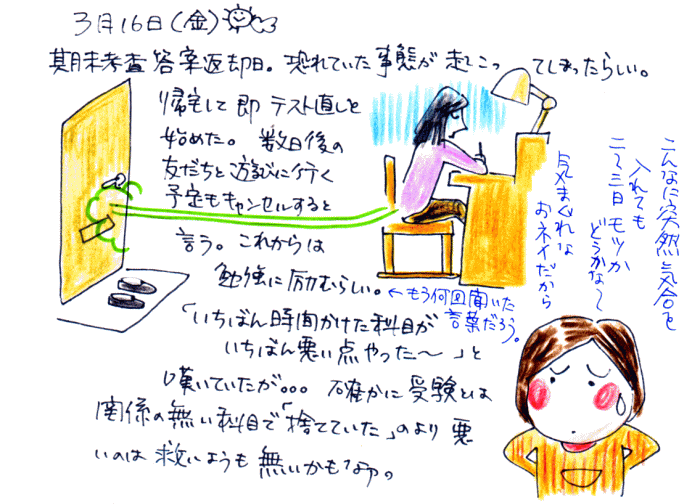 3月16日(金)
期末考査答案返却日。恐れていた事態が起こってしまったらしい。
帰宅して即テスト直しと
始めた。数日後の
友だちと遊びに行く
予定もキャンセルすると
言う。これからは
勉強に励むらしい。
←もう何回聞いた
言葉だろう。
「いちばん時間かけた科目が
いちばん悪い点やった〜」と
嘆いていたが。。。確かに受験とは
関係の無い科目で「捨てていた」のより悪
いのは救いようも無いかもなァ。
こんなに突然気合を
入れても
二〜三日モツか
どうかな〜
気まぐれな
おネイだから